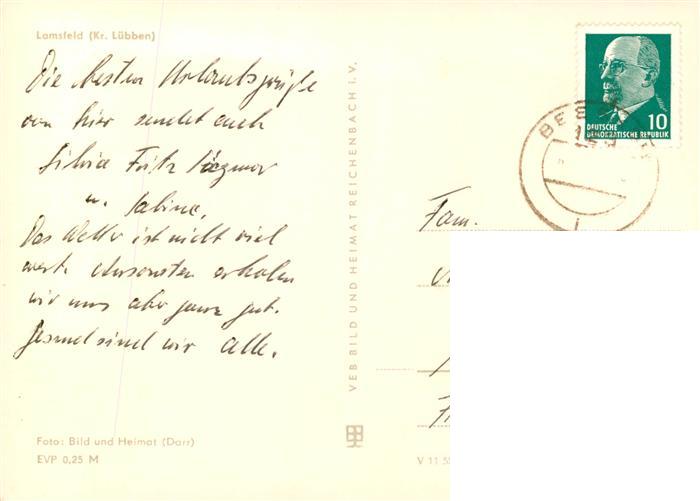 Lamsfeld (Kr. Lübben)
Die besten Urlaubsgrüße
von hier sendet euch
Silvia Fritz Dagmar
u. Sabine.
Das Wetter ist nicht viel
wert. Ansonsten erholen
wir uns aber ganz gut.
Gesund sind wir alle.
Foto: Bild und Heimat (Darr)
EVP 0,25 M
VEB BILD UND HEIMAT REICHENBACH I. V.
10
DEUTSCHE
DEMOKRATISCHE REPUBLIK
Fam.
V 11 5